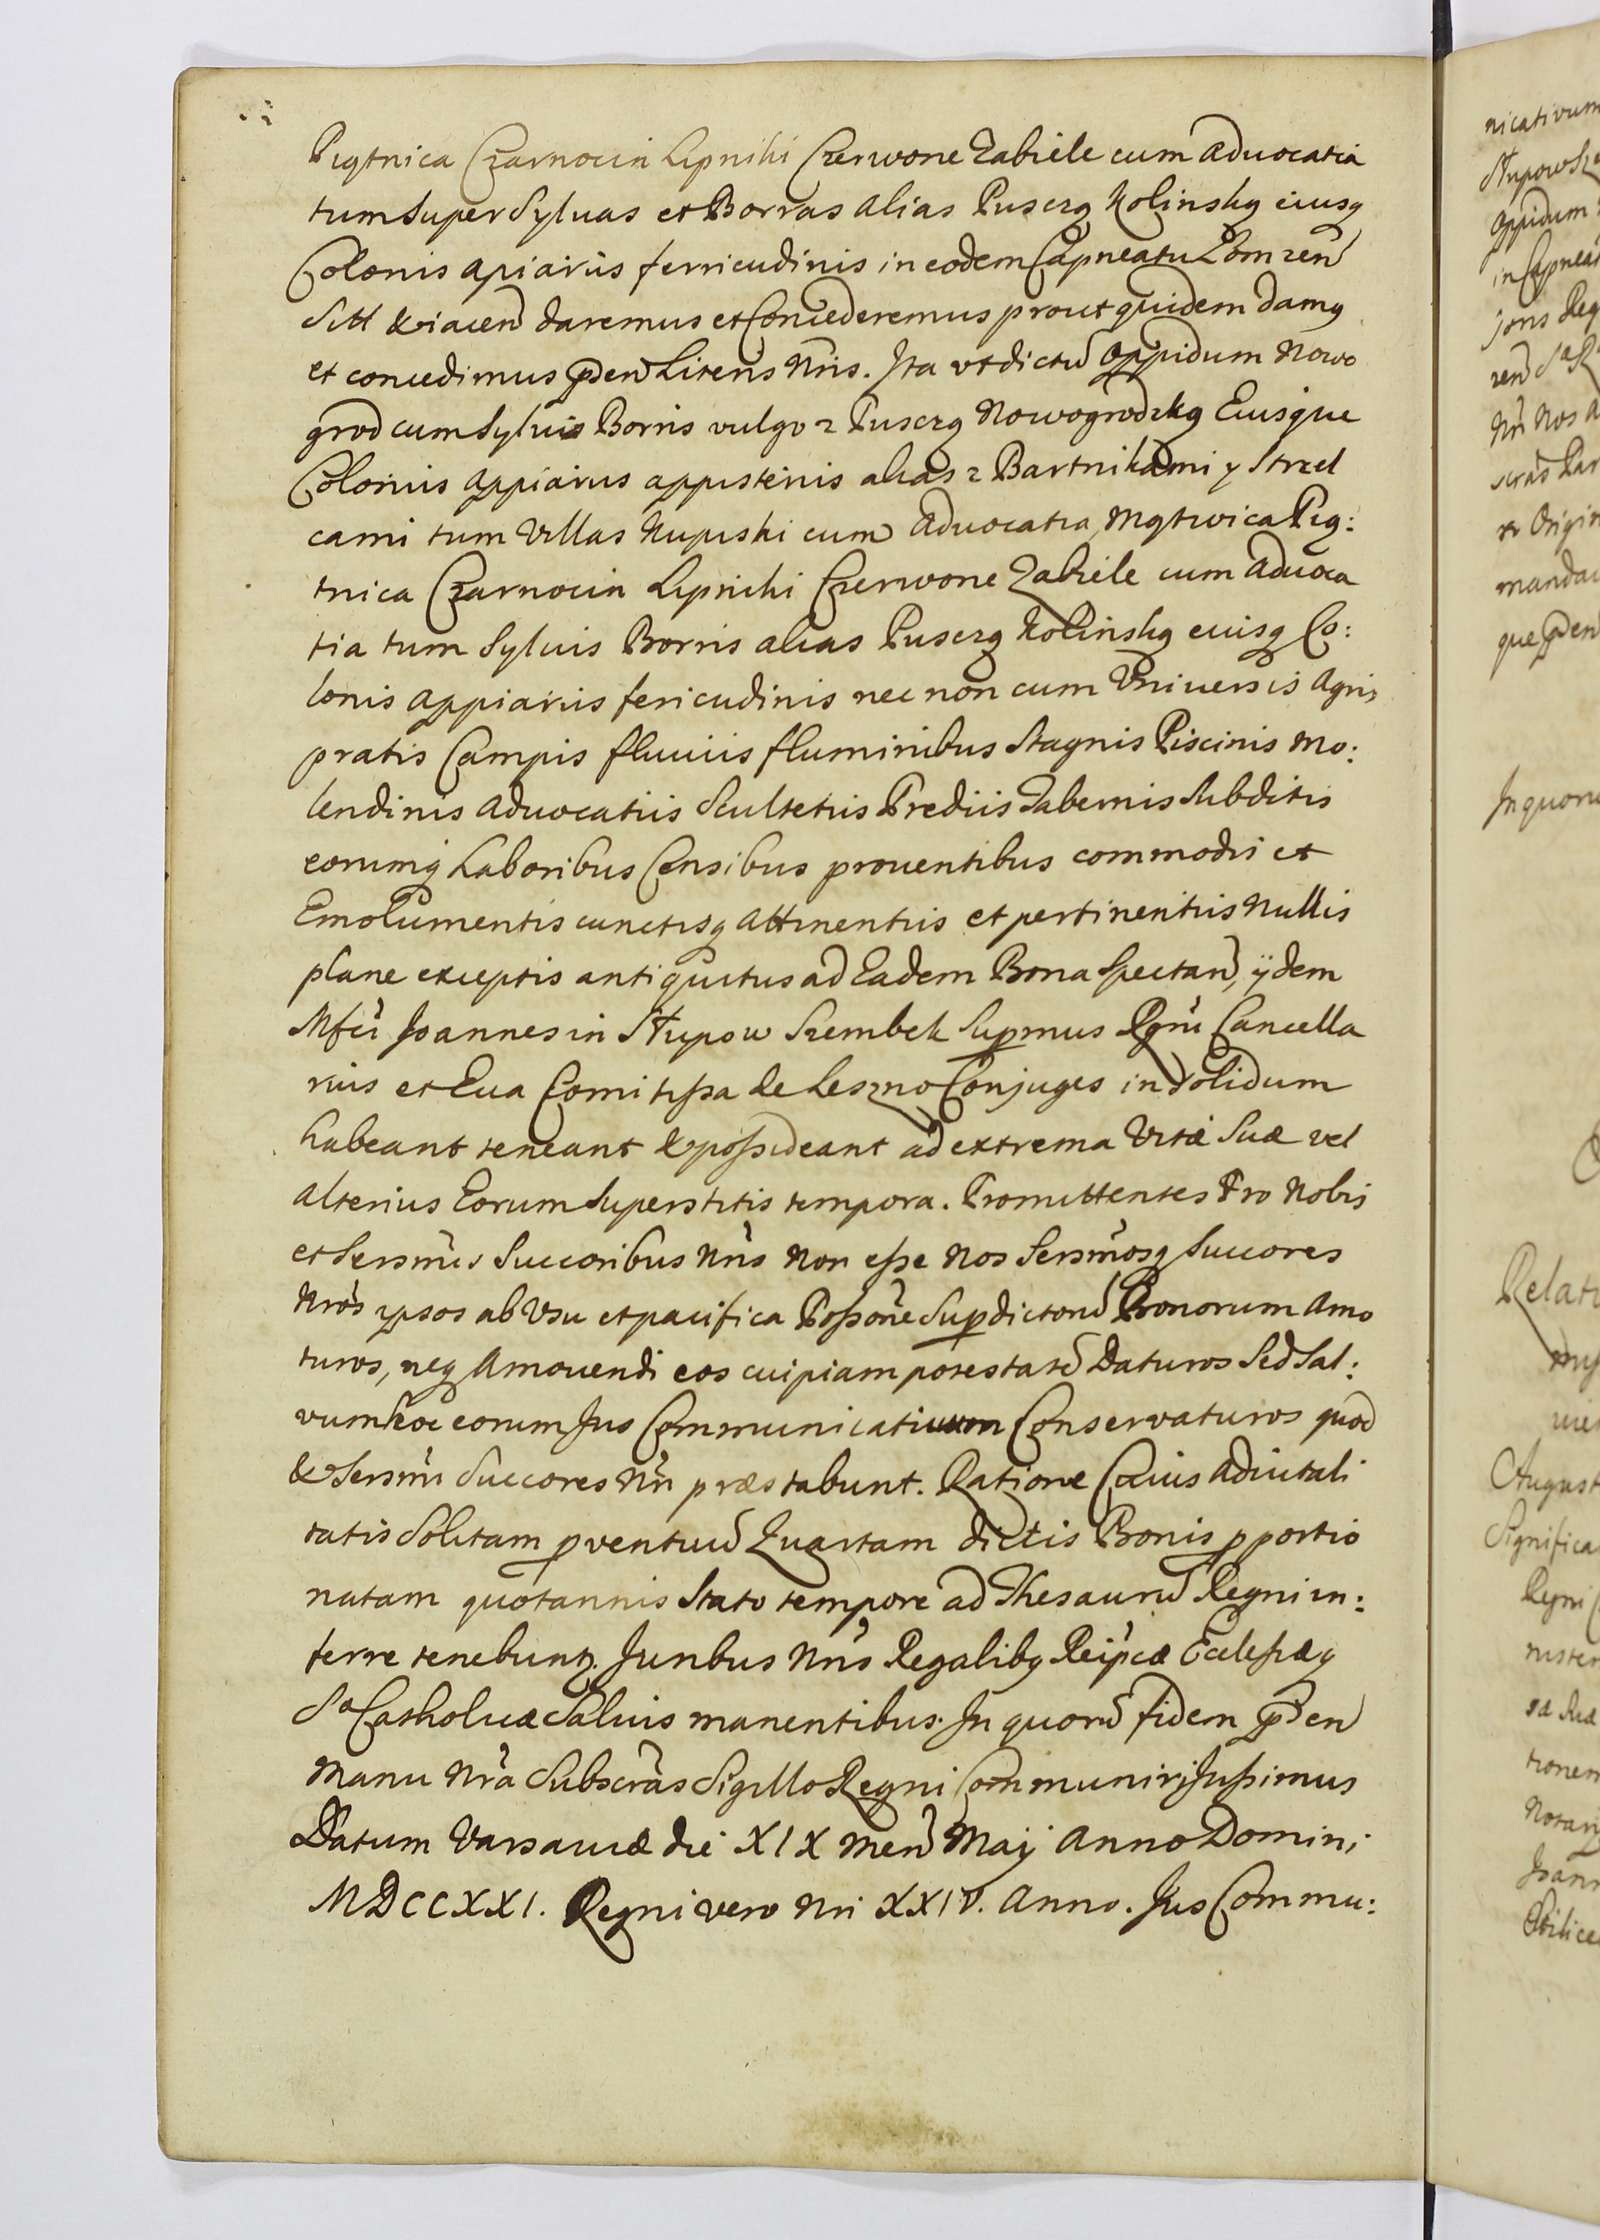 Piątnica Czarnocin Lipniki Czerwone Zabiele cum Aduocatia
tum super Syluas et Borras alias Puszczą Kolinską eiusq
Colonis apiariis ferricudinis in eodem Capneatu Łomzen
Sitt & iacen daremus et Concederemus prout quidem damq
et concedimus pden Literis Nris. Ita vt dictu Oppidum Nowo
grod cum Syluis Borris vulgo z Puszczą Nowogrodzką Eiusque
Colonis appiariis appistenis alias z Bartnikami y Strzel
cami tum Villas Kupiski cum Aduocatia, Mątwica Pią:
tnica Czarnocin Lipniki Czerwone Zabiele cum Aduoca
tia tum Syluis Borris alias Puszczą Kolinską eiusq Co:
lonis appiariis fericudinis nec non cum Vniuersis Agris
pratis Campis fluuiis fluminibus Stagnis Piscinis Mo:
lendinis Aduocatiis Scultetiis Prediis Tabernis Subditis
eorumq Laboribus Censibus prouentibus commodis et
Emolumentis cunctisq attinentiis et pertinentiis Nullis
plane exceptis antiquitus ad Eadem Bona Spectan, ijdem
Mfci Joannes in Słupow Szembek Supmus Rgni Cancella
rius et Eua Comitissa de Leszno Conjuges in solidum
habeant teneant & possideant ad extrema Vitæ Suæ vel
alterius Eorum Superstitis tempora. Promittentes Pro Nobis
et Sersmis Succoribus Nris Non esse Nos Sersmosq Succores
Nros ipsos ab Vsu et pacifica Possone Supdictoru Bonorum Amo
turos, neq Amouendi eos cuipiam potestate Daturos Sed Sal:
vum hoc eorum Jus Communicatiuum Conservaturos quod
& Sersmi Succores Nri præstabunt. Ratione Cuius Aduitali
tatis Solitam pventuu Quartam dictis Bonis pportio
natam quotannis Stato tempore ad Thesauru Regni in:
ferre tenebuntr. Juribus Nris Regalibq Reipcæ Ecclesiæq
Sæ Catholicæ Saluis manentibus. In quoru fidem pden
Manu Nra Subscras Sigillo Regni Communiri Jussimus
Datum Varsauiæ die XIX Men Maij Anno Domini
MDCCXXI. Regni vero Nri XXIV. Anno. Jus Commu:
nicativum
Słupow Sz
Oppidum
in Capneat
Nri Nos A
manda
que pden
In quoru
Relati
August
Significa
Regni C
Notarij